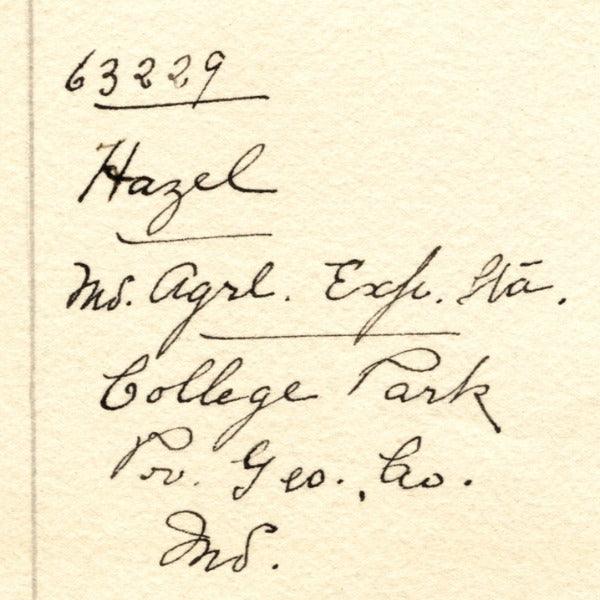 63229
Hazel
Md. Agrl. Exp. Sta.
College Park
Pr. Geo. Co.
Md.